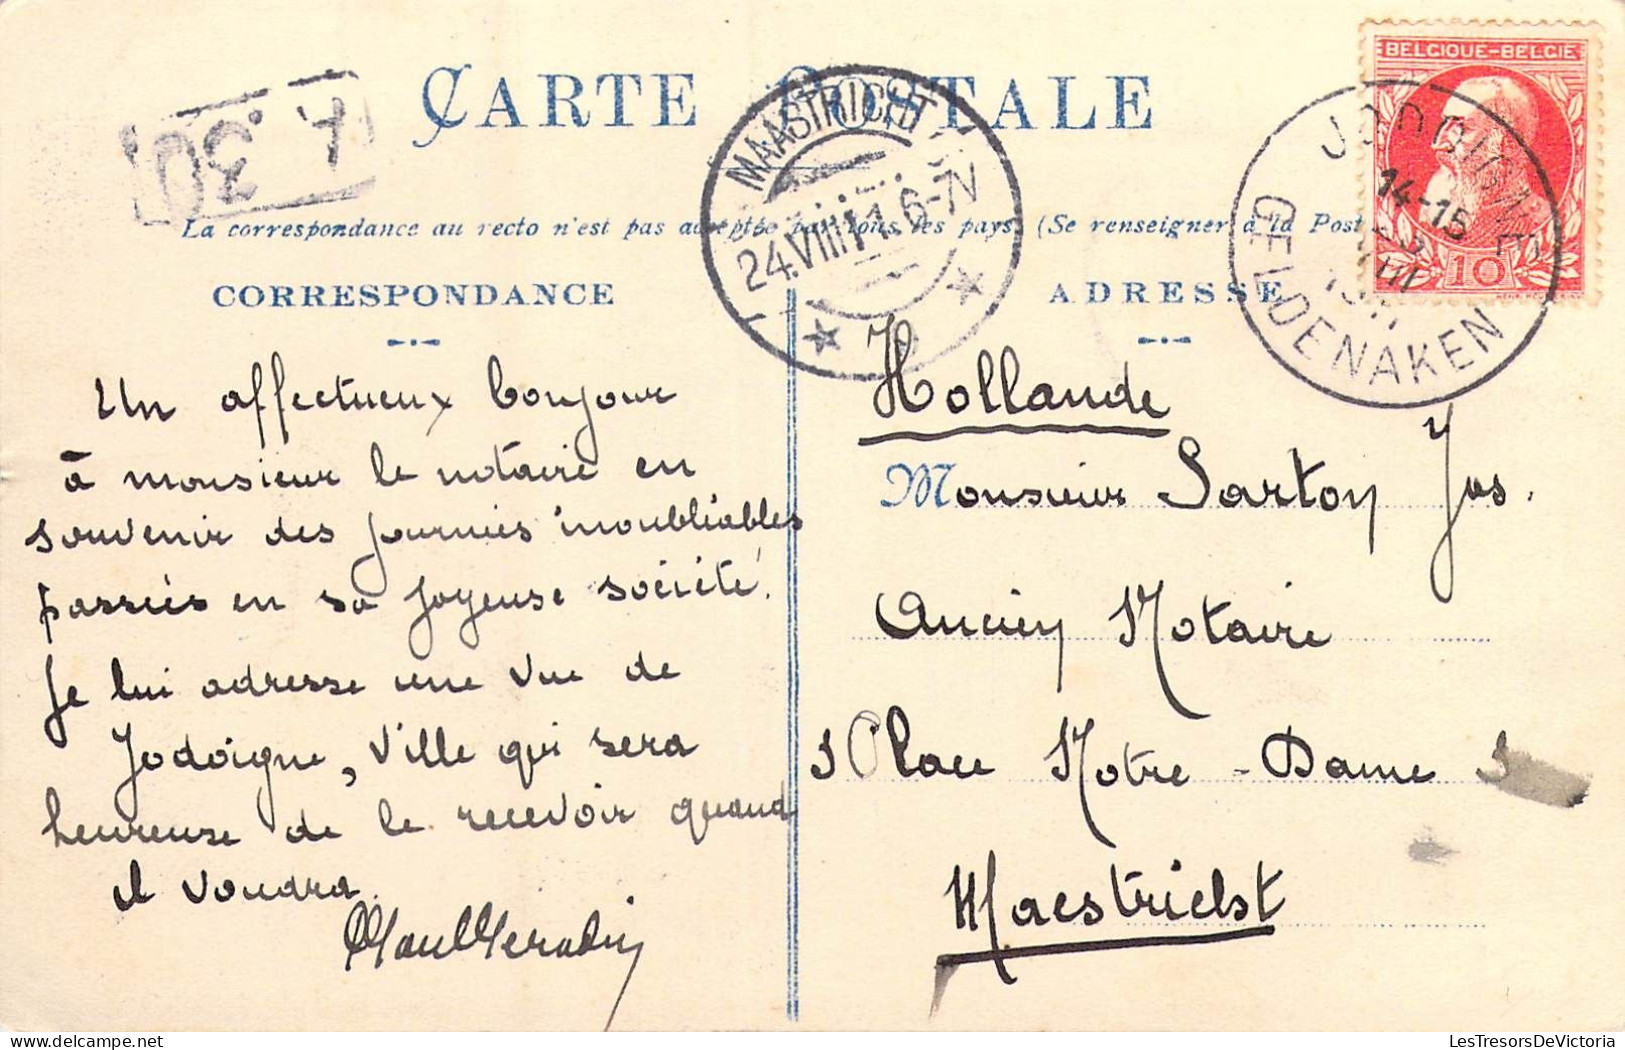 CARTE POSTALE
BELGIQUE-BELGIE
10
MAASTRICHT
24.VIII.11.6-7V
JODOIGNE
14-15
VIII
GELDENAKEN
4.30
La correspondance au recto n'est pas acceptée par tous les pays (Se renseigner à la Post
CORRESPONDANCE
Un affectueux bonjour
à monsieur le notaire en
souvenir des journées inoubliables
passées en sa joyeuse société.
Je lui adresse une vue de
Jodoigne, ville qui sera
heureuse de le recevoir quand
il voudra.
ADRESSE
Hollande
Monsieur Sartoy Jos.
Ancien Notaire
Place Notre-Dame
Maestricht
LesTresorsDeVictoria.com